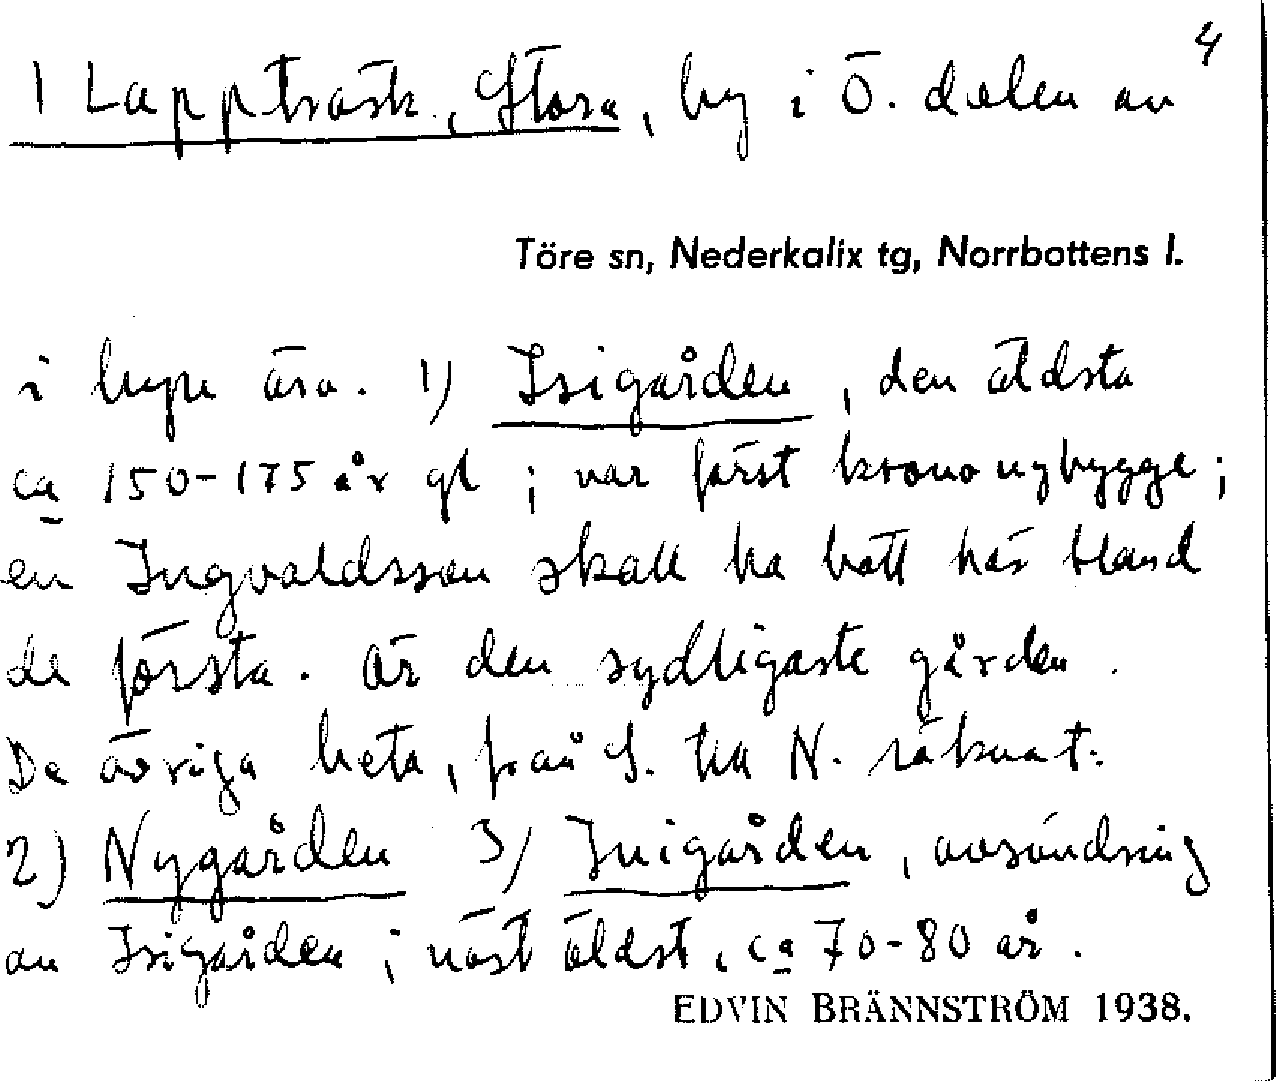 4
1 Lappträsk, Stora, by i Ö. delen av
Töre sn, Nederkalix tg, Norrbottens l.
i byn äro. 1) Isigården, den äldsta
ca 150-175 år gl; var först krononybygge;
en Ingvaldsson skall ha bott här bland
de första. Är den sydligaste gården.
De övriga heta, från S. till N. räknat:
2) Nygården 3) Inigården, avsöndring
av Isigården; näst äldst, ca 70-80 år.
EDVIN BRÄNNSTRÖM 1938.